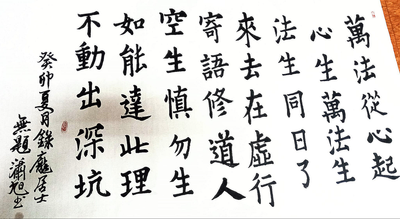 萬法從心起
心生萬法生
法生同日了
來去在虛行
寄語修道人
空生慎勿生
如能達此理
不動出深坑
癸卯夏月錄龐居士
無題 瀟旭书